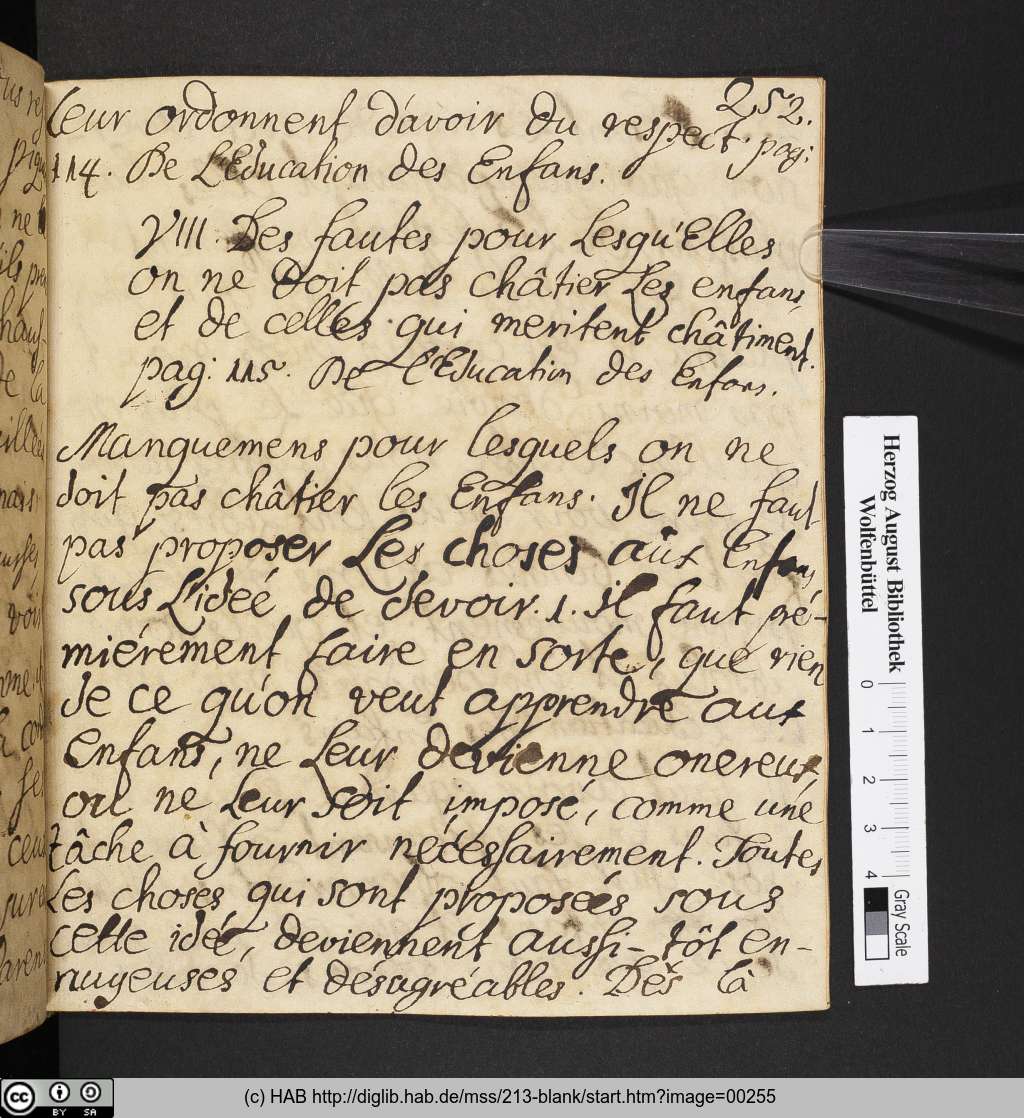 252.
leur ordonnent d'avoir du respect. pag:
114. De L'Education des Enfans.
VIII. Des fautes pour Lesqu'Elles
on ne doit pas châtier Les enfans,
et de celles qui meritent châtiment.
pag: 115. De l'Education des Enfans.
Manquemens pour lesquels on ne
doit pas châtier les Enfans. Il ne faut
pas proposer Les choses aux Enfans
sous L'idée de devoir. 1. Il faut pré-
miérement faire en sorte, que rien
de ce qu'on veut apprendre aux
Enfans, ne Leur devienne onereux,
ou ne Leur soit imposé, comme une
tâche à fournir nécessairement. Toutes
Les choses qui sont proposées sous
cette idée, deviennent aussi-tôt en-
nuyeuses et désagréables. Dès là
Herzog August Bibliothek
Wolfenbüttel
0 1 2 3 4
Gray Scale
cc BY SA
(c) HAB http://diglib.hab.de/mss/213-blank/start.htm?image=00255